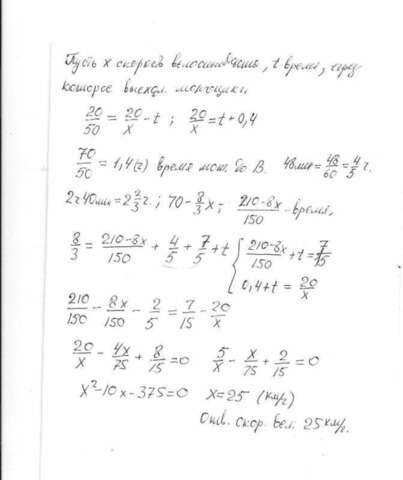 Пусть x скорость велосипедиста, t время, через
которое выехал мотоцикл.
20/50 = 20/x - t ; 20/x = t + 0,4
70/50 = 1,4(г) время мот. до В. 48мин = 48/60 = 4/5 г.
2г40мин = 2 2/3 г. ; 70 - 8/3 x ; (210-8x)/150 - время.
8/3 = (210-8x)/150 + 4/5 + 7/5 + t { (210-8x)/150 + t = 7/15
0,4 + t = 20/x
210/150 - 8x/150 - 2/5 = 7/15 - 20/x
20/x - 4x/75 + 8/15 = 0 5/x - x/75 + 2/15 = 0
x² - 10x - 375 = 0 x = 25 (км/г)
Отв. скор. вел. 25 км/г.